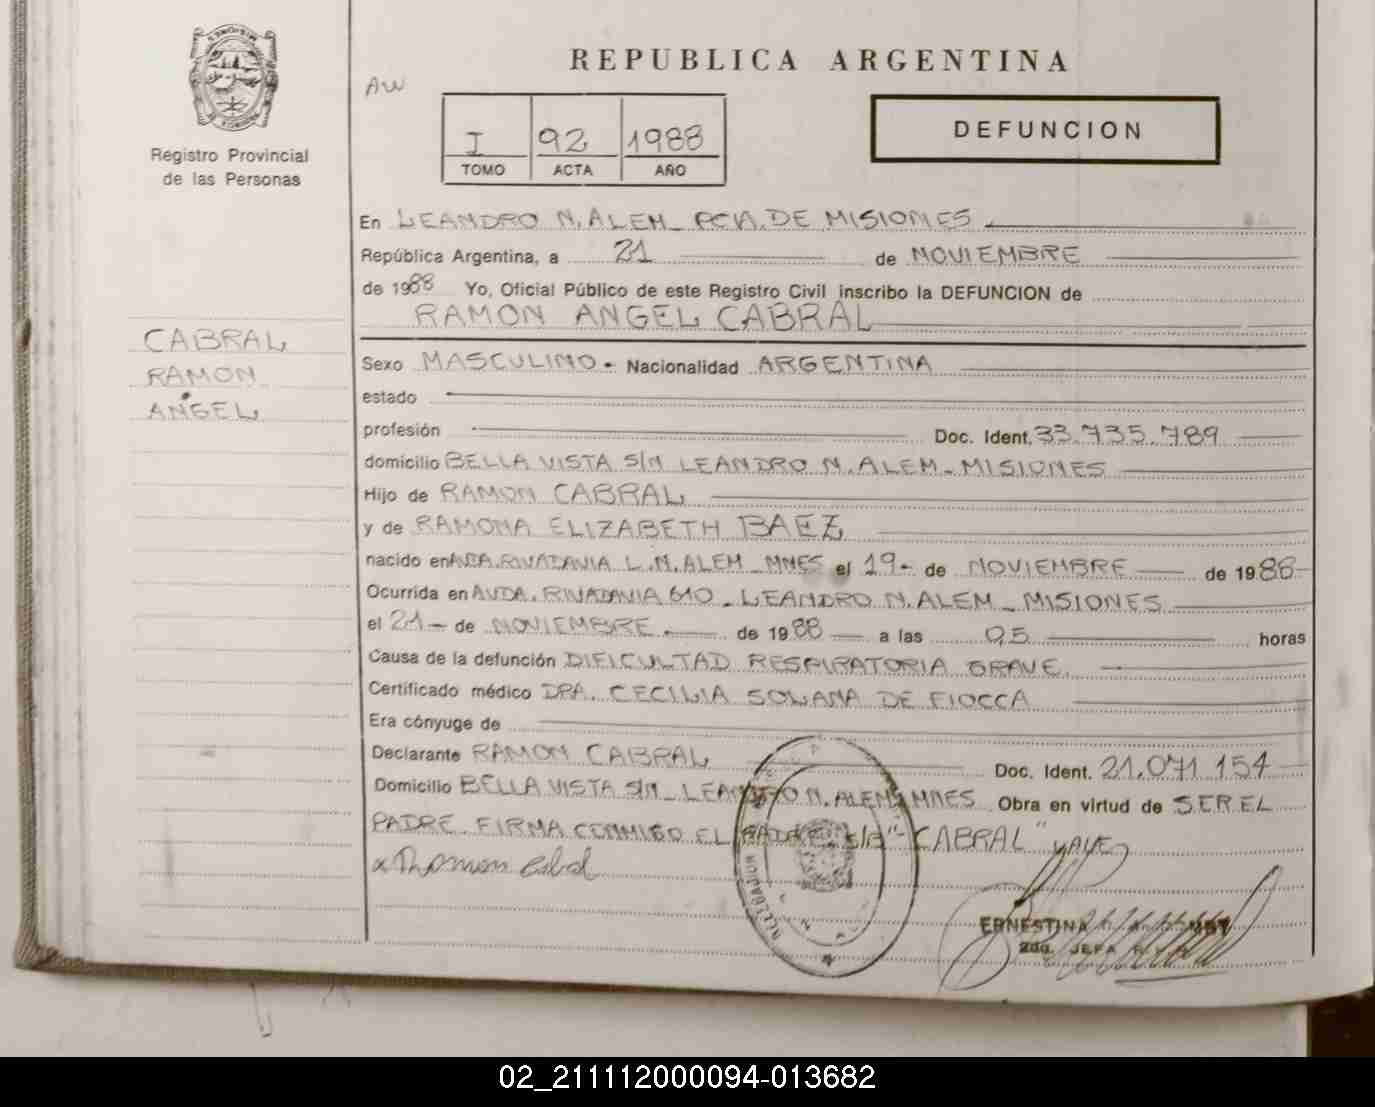 REPUBLICA ARGENTINA
AW
I 92 1988
TOMO ACTA AÑO
DEFUNCION
Registro Provincial
de las Personas
En LEANDRO N. ALEM_ PCIA. DE MISIONES
República Argentina, a 21 de NOVIEMBRE
de 1988 Yo, Oficial Público de este Registro Civil inscribo la DEFUNCION de
RAMON ANGEL CABRAL
CABRAL
RAMON
ANGEL
Sexo MASCULINO - Nacionalidad ARGENTINA
estado
profesión Doc. Ident. 33.735.789
domicilio BELLA VISTA S/N LEANDRO N. ALEM_ MISIONES
Hijo de RAMON CABRAL
y de RAMONA ELIZABETH BAEZ
nacido en AVDA. RIVADAVIA L.N. ALEM_ MNES el 19- de NOVIEMBRE de 1988
Ocurrida en AVDA. RIVADAVIA 610_ LEANDRO N. ALEM_ MISIONES
el 21- de NOVIEMBRE de 1988 a las 05 horas
Causa de la defunción DIFICULTAD RESPIRATORIA GRAVE.
Certificado médico DRA. CECILIA SOLANA DE FIOCCA
Era cónyuge de
Declarante RAMON CABRAL Doc. Ident. 21.071.154
Domicilio BELLA VISTA S/N_ LEANDRO N. ALEM_ MNES Obra en virtud de SER EL
PADRE_ FIRMA CONMIGO EL PADRE_ S/R "- CABRAL" VALE
ERNESTINA
2da. JEFA
02_211112000094-013682